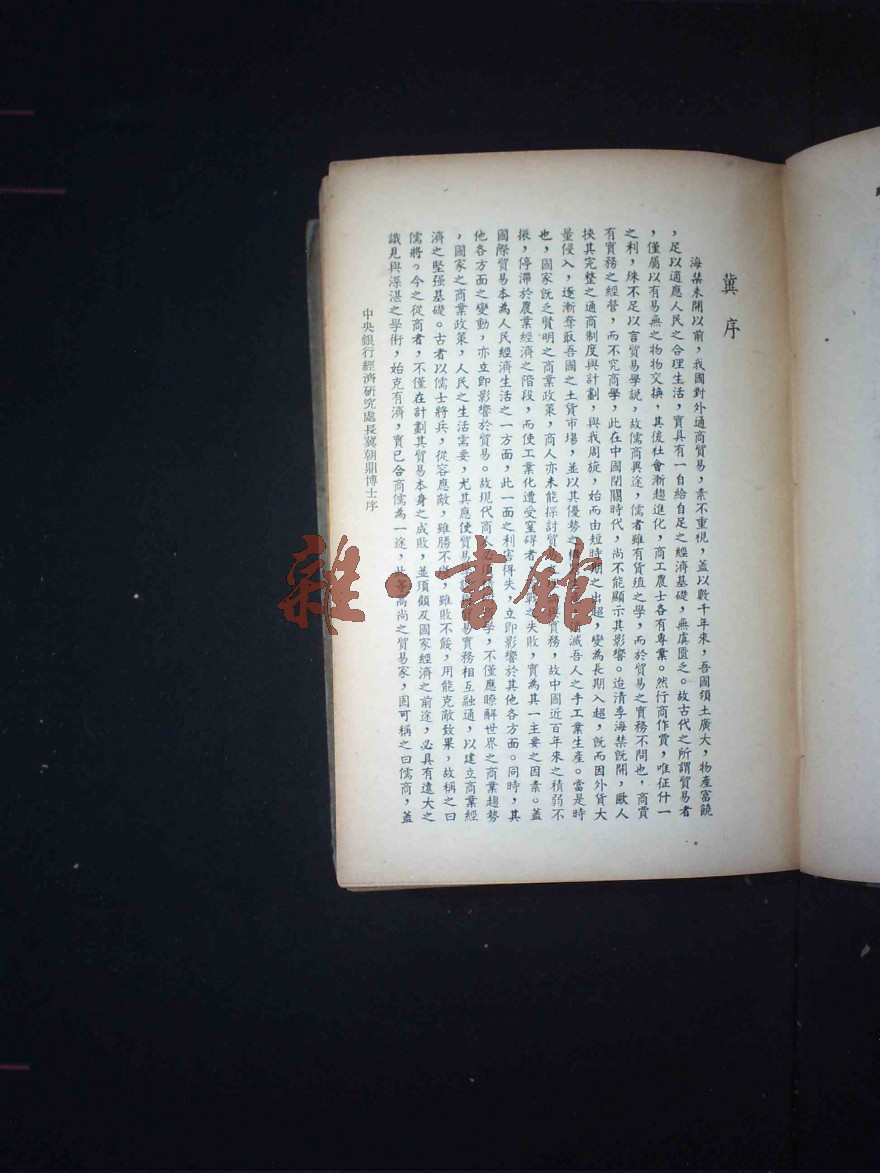 冀序
海禁未開以前，我國對外通商貿易，素不重視，蓋以數千年來，吾國領土廣大，物產富饒
，足以適應人民之合理生活，實具有一自給自足之經濟基礎，無虞匱乏。故古代之所謂貿易者
，僅屬以有易無之物物交換，其後社會漸趨進化，商工農士各有專業。然行商作賈，唯征什一
之利，殊不足以言貿易學說，故儒商異途，儒者雖有貨殖之學，而於貿易之實務不問也，商賈
有實務之經營，而不究商學，此在中國閉關時代，尚不能顯示其影響。迨清季海禁既開，歐人
挾其完整之通商制度與計劃，與我周旋，始而由短時期之出超，變為長期入超，既而因外貨大
量侵入，逐漸奪取吾國之土貨市場，並以其優勢之 滅吾人之手工業生產。當是時
也，國家既乏賢明之商業政策，商人亦未能探討貿易 實務，故中國近百年來之積弱不
振，停滯於農業經濟之階段，而使工業化遭受窒碍者， 戰之失敗，實為其一主要之因素。蓋
國際貿易本為人民經濟生活之一方面，此一面之利害得失，立即影響於其他各方面。同時，其
他各方面之變動，亦立即影響於貿易。故現代商人必須 學，不僅應瞭解世界之商業趨勢
，國家之商業政策，人民之生活需要，尤其應使貿易 貿易實務相互融通，以建立商業經
濟之堅强基礎。古者以儒士將兵，從容應敵，雖勝不 ，雖敗不餒，用能克敵致果，故稱之曰
儒將。今之從商者，不僅在計劃其貿易本身之成敗，並須顧及國家經濟之前途，必具有遠大之
識見與深湛之學術，始克有濟，實已合商儒為一途，此等高尚之貿易家，固可稱之曰儒商，蓋
中央銀行經濟研究處長冀朝鼎博士序
雜·書館